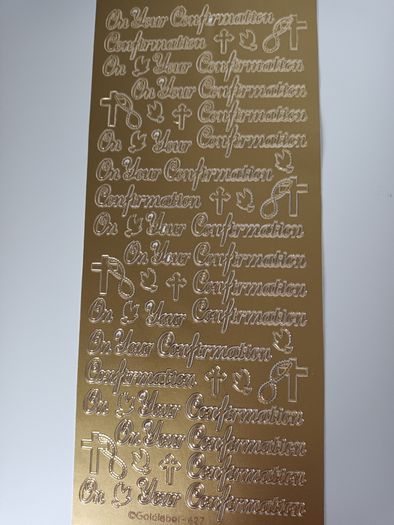 On Your Confirmation
Confirmation
On Your Confirmation
On Your Confirmation
Confirmation
On Your Confirmation
On Your Confirmation
Confirmation
On Your Confirmation
On Your Confirmation
Confirmation
On Your Confirmation
On Your Confirmation
Confirmation
On Your Confirmation
On Your Confirmation
Confirmation
On Your Confirmation
©Goldlabel - 627